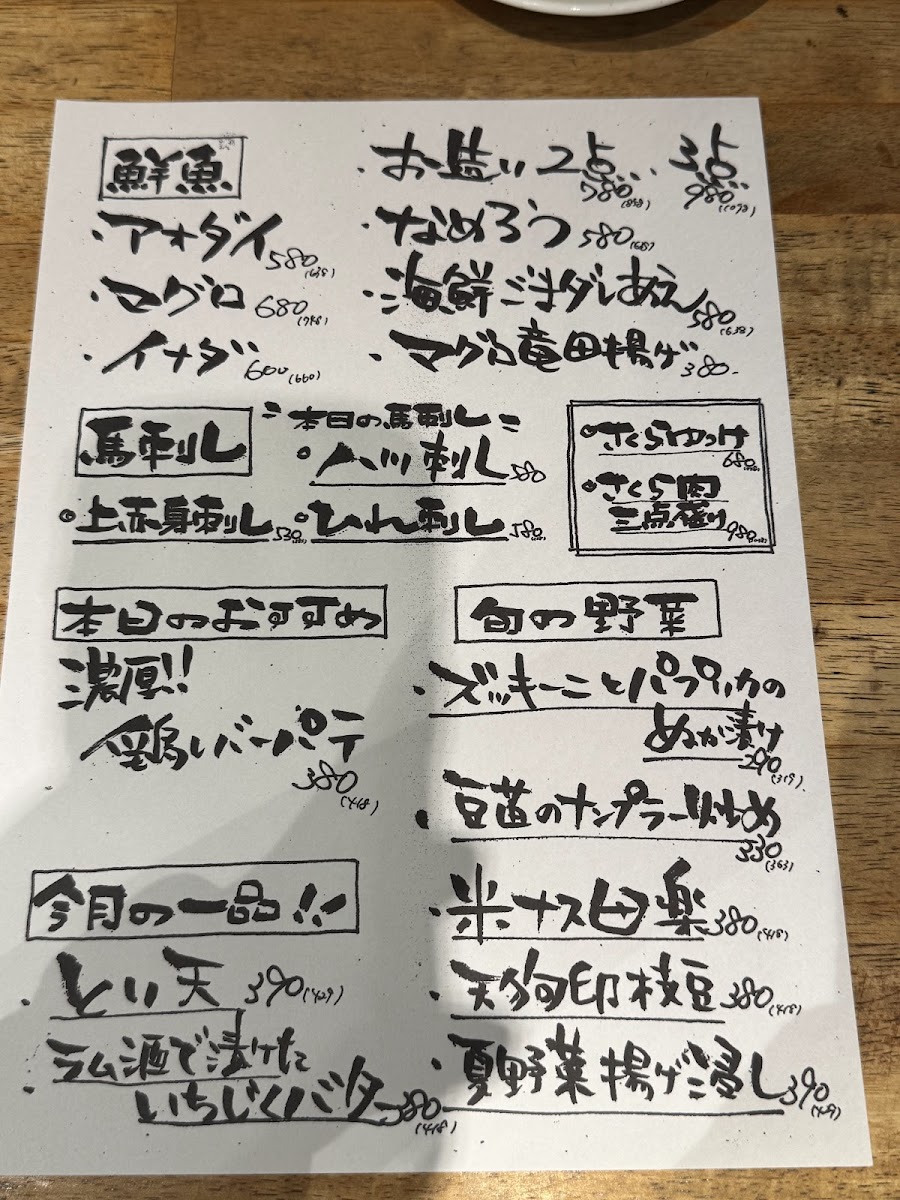 鮮魚
・アオダイ 580(638)
・マグロ 680(748)
・イナダ 600(660)
・お造り 2点… 780(858) 3点… 980(1078)
・なめろう 580(638)
・海鮮ごまダレあえ 580(638)
・マグロ竜田揚げ 380
馬刺し
=本日の馬刺し=
・ハツ刺し 580
・上赤身刺し 530
・ひれ刺し 580
・さくらゆっけ 680
・さくら肉
三点盛り 980
本日のおすすめ
濃厚!!
鶏レバーパテ
380(418)
旬の野菜
・ズッキーニとパプリカの
ぬか漬け
290(319)
・豆苗のナンプラー炒め
330(363)
・米ナス田楽 380(418)
・天狗印枝豆 380(418)
・夏野菜揚げ浸し 390(429)
今月の一品!!
・とり天 390(429)
・ラム酒で漬けた
いちじくバター 380(418)